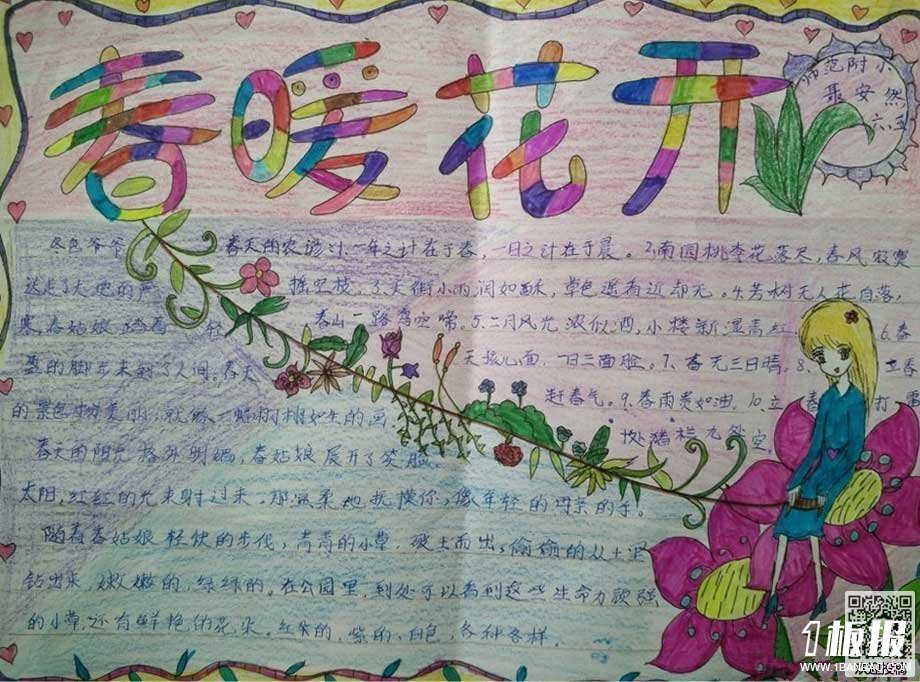 春暖花开
师范附小
聂安然
六.三
冬色爷爷
送走了大地的严
寒,春姑娘踏着轻
盈的脚步来到了人间。春天
的景色物美丽,就像一幅栩栩如生的画。
春天的阳光格外明媚,春姑娘展开了笑脸
太阳,红红的光束射过来,那温柔地抚摸你,像年轻的母亲的手。
随着春姑娘轻快的步伐,青青的小草,破土而出,偷偷的从土里
钻出来,嫩嫩的,绿绿的。在公园里,到处可以看到这些生命力顽强
的小草,还有鲜艳的花朵。红朱的,紫的,白色,各种各样.
春天的农谚:1.一年之计在于春,一日之计在于晨。2.南园桃李花落尽,春风寂寞
摇空枝。3.天街小雨润如酥,草色遥看近却无。4.芳树无人花自落,
春山一路鸟空啼。5.二月风光浓似酒,小楼新湿青红 6.春
天孩儿面,一日三面脸。7.春无三日晴。8. 立春
赶春气。9.春雨贵如油。10.立春打雷
十处猪栏九处空
1板报
WWW.1BANBAO.COM
欢迎投稿